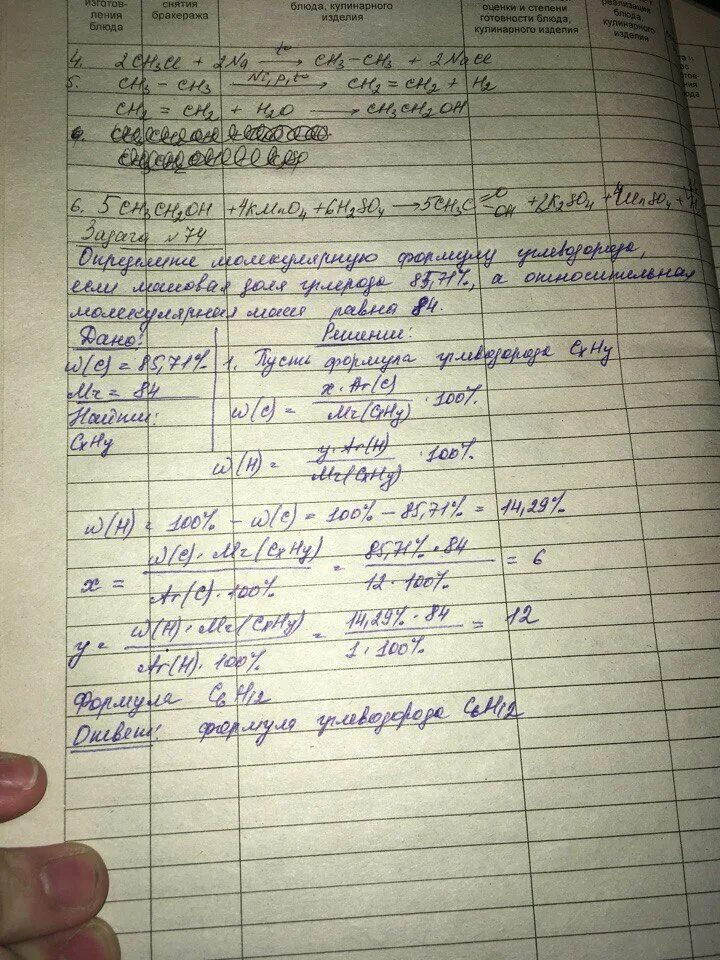 изготов-
ления
блюда
снятия
бракеража
блюда, кулинарного
изделия
оценки и степени
готовности блюда,
кулинарного изделия
реализации
блюда,
кулинарного
изделия
4. 2CH3Cl + 2Na —to→ CH3–CH3 + 2NaCl
5. CH3 – CH3 —Ni,p,to→ CH2 = CH2 + H2
CH2 = CH2 + H2O → CH3CH2OH
6. 5CH3CH2OH + 4KMnO4 + 6H2SO4 → 5CH3C =O –OH + 2K2SO4 + 4MnSO4 +
Задача №74
Определите молекулярную формулу углеводорода,
если массовая доля углерода 85,71%, а относительная
молекулярная масса равна 84.
Дано:
w(C) = 85,71%
Mr = 84
Найти:
CxHy
Решение:
1. Пусть формула углеводорода CxHy
w(C) = x · Ar(C) / Mr(CxHy) · 100%
w(H) = y · Ar(H) / Mr(CxHy) · 100%
w(H) = 100% – w(C) = 100% – 85,71% = 14,29%
x = w(C) · Mr(CxHy) / Ar(C) · 100% = 85,71% · 84 / 12 · 100% = 6
y = w(H) · Mr(CxHy) / Ar(H) · 100% = 14,29% · 84 / 1 · 100% = 12
Формула C6H12
Ответ: формула углеводорода C6H12